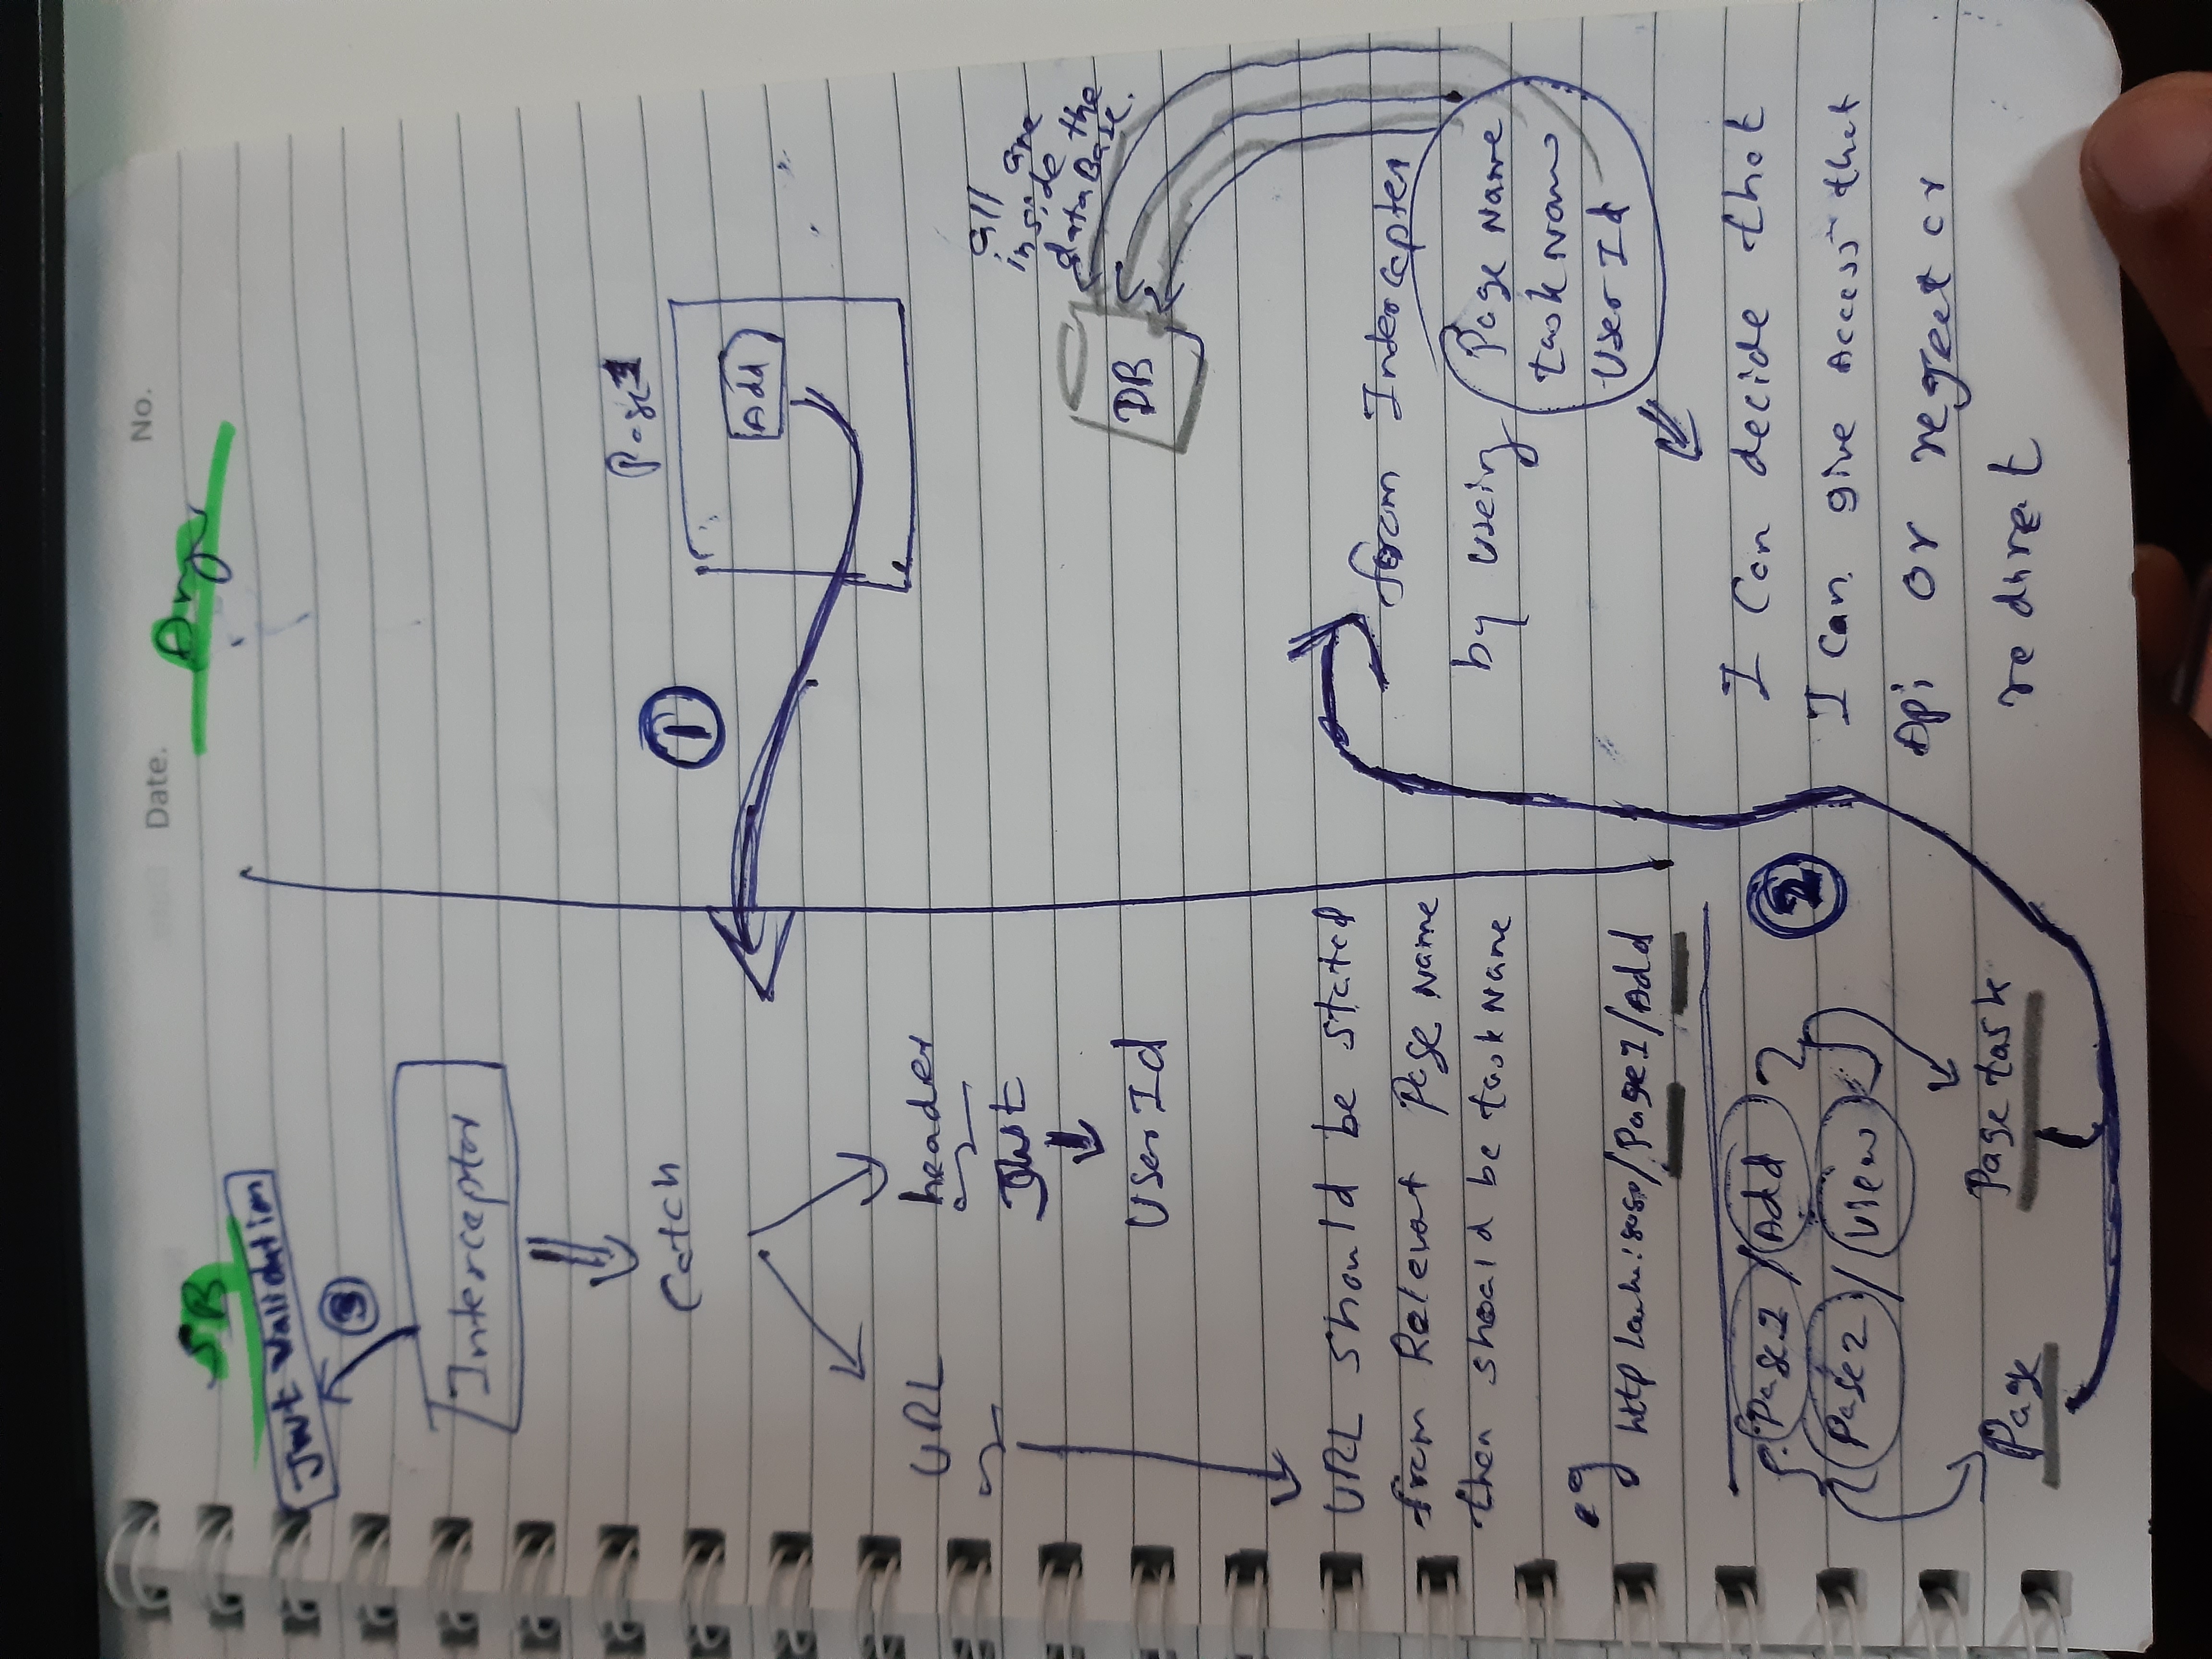 Date.
No.
SB
Ang
Jwt Validation
3
Interceptor
Catch
URL
header
Jwt
User Id
URL should be stated
from Relevat Page Name
then should be task Name
eg
http :8080/Page1/Add
Page1/Add
Page2/View
Page
Page task
1
Page1
Add
all are
inside the
dataBase.
DB
2
from Intercepter
by useing
Page Name
task Name
User Id
I Can decide that
I Can give Access that
Api or regect or
redirect